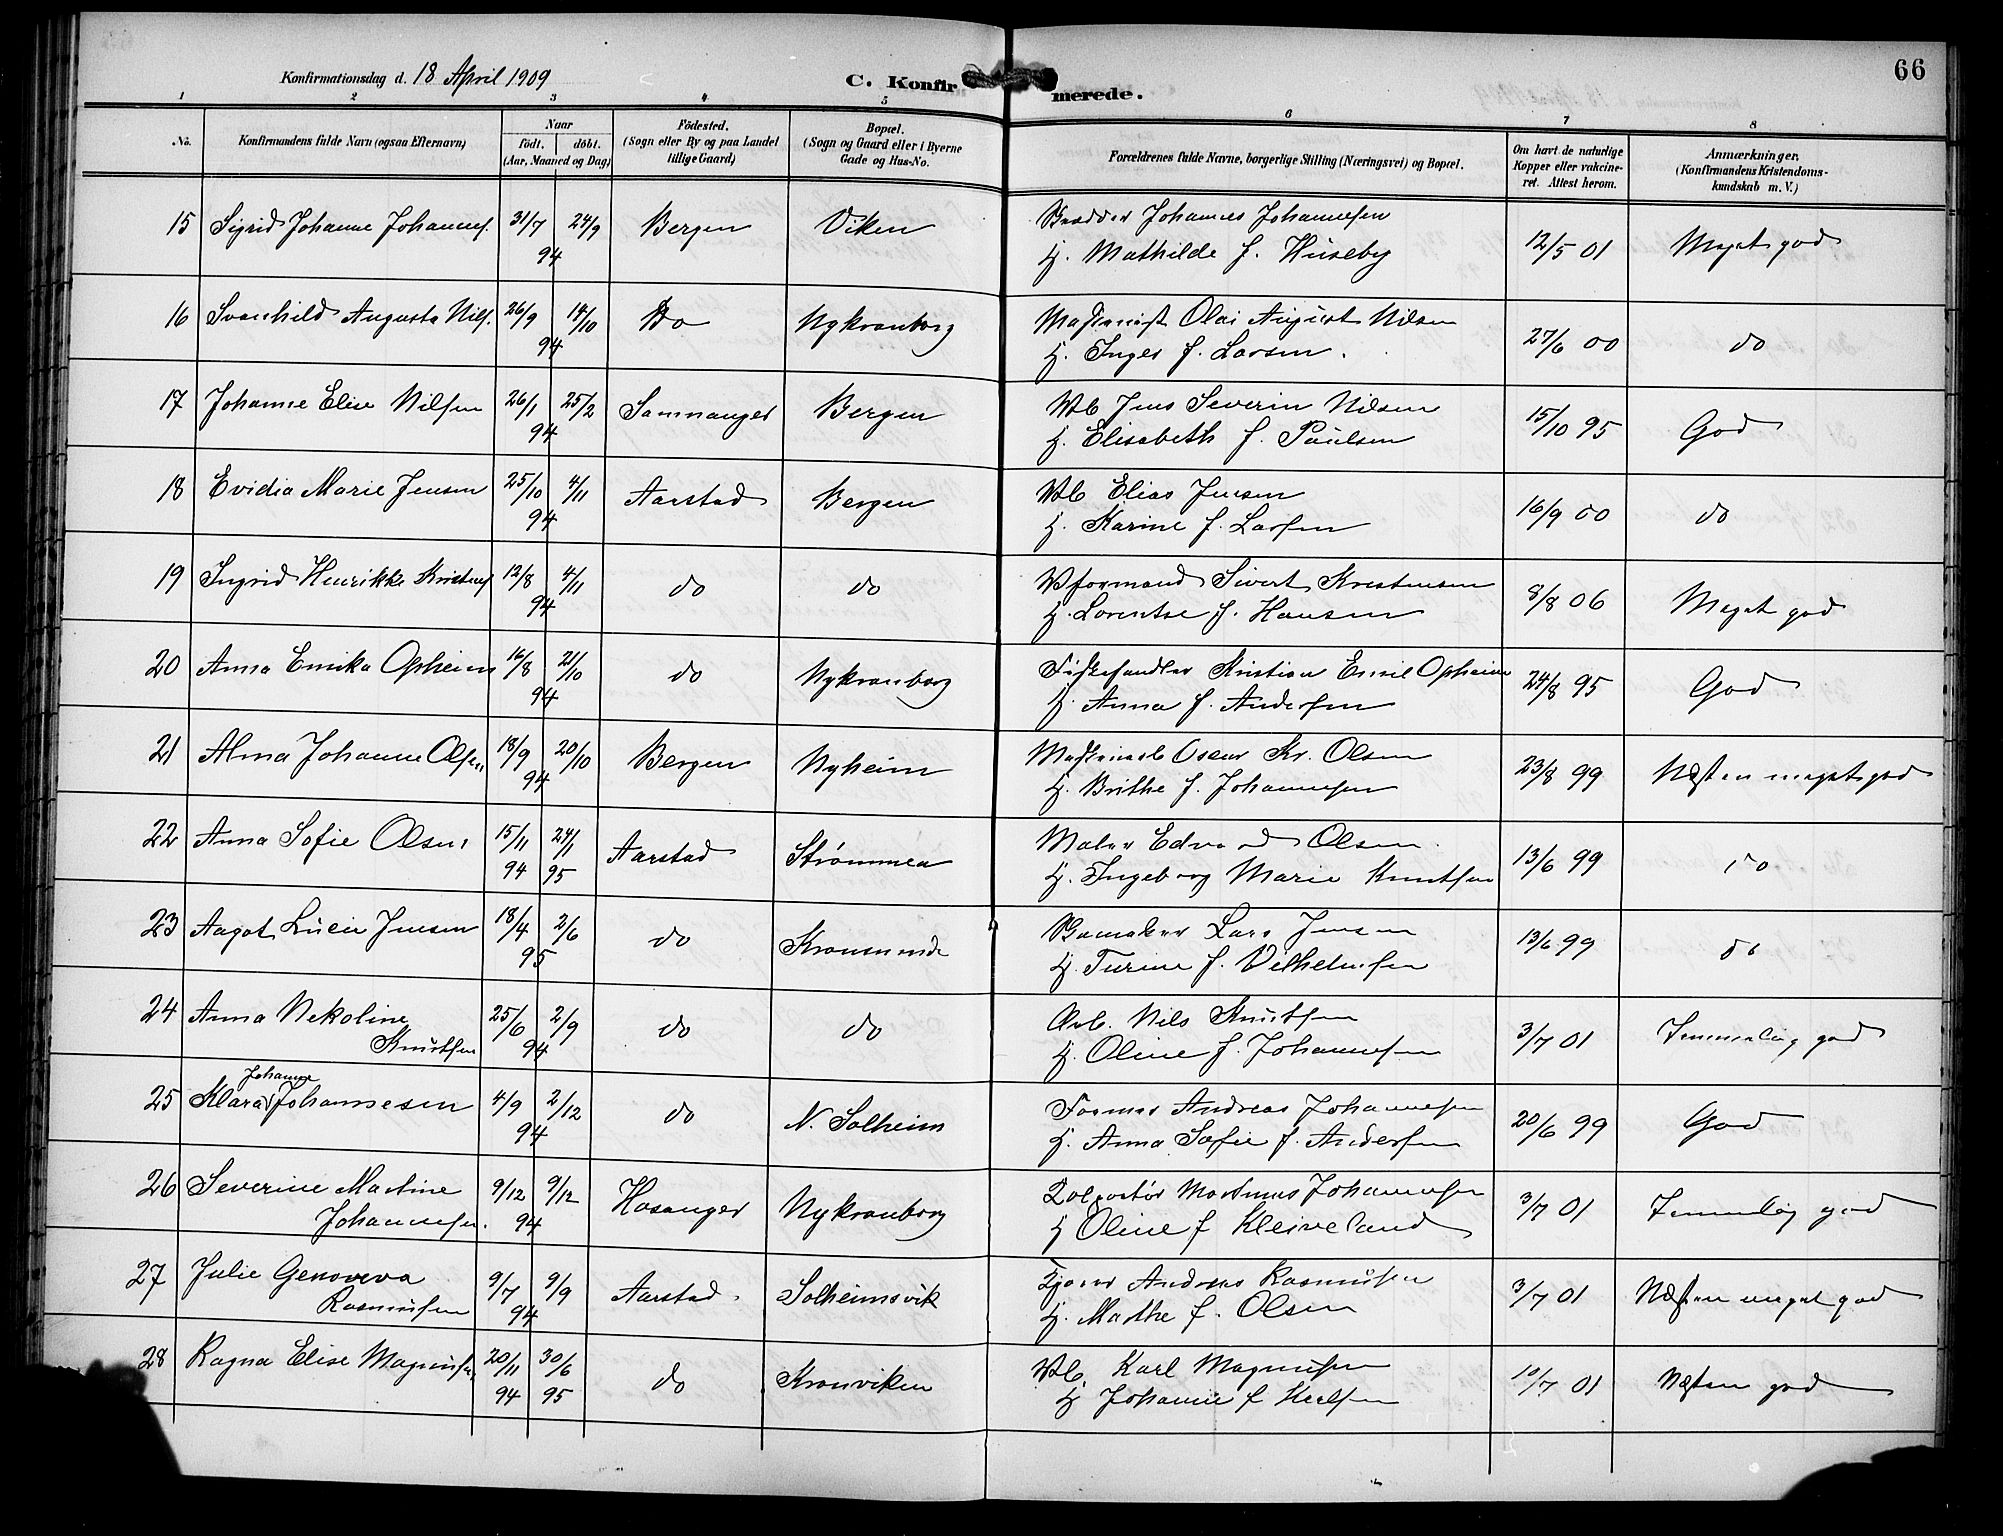 66
Konfirmationsdag d. 18 April 1909
C. Konfirmerede.
1 2 3 4 5 6 7 8
No. Konfirmandens fulde Navn (ogsaa Efternavn) Naar født. døbt. (Aar, Maaned og Dag) Fødested. (Sogn eller By og paa Landet tillige Gaard) Bopæl. (Sogn og Gaard eller i Byerne Gade og Hus-No. Forældrenes fulde Navne, borgerlige Stilling (Næringsvei) og Bopæl. Om havt de naturlige Kopper eller vakcineret. Attest herom. Anmærkninger. (Konfirmandens Kristendomskundskab m. V.)
15 Sigrid Johanne Johannes. 31/7 24/9 94 Bergen Viken Johannes Johannesen
H. Mathilde f. Huseby 12/5 01 Meget god
16 Svanhild Augusta Nils. 26/9 14/10 94 Do Nykronborg Maskinist Olai August Nilsen
H. Inger f. Larsen. 27/6 00 do
17 Johanne Elise Nilsen 26/1 25/2 94 Samnanger Bergen Jens Severin Nilsen
H. Elisabeth f. Paulsen 15/10 95 God
18 Evidia Marie Jensen 25/10 4/11 94 Aarstad Bergen Elias Jensen
H. Karine f. Larsen 16/9 00 do
19 Ingrid Henrikke Kristens 12/8 4/11 94 do do Formand Sivert Kristensen
H. Lorentse f. Hansen 8/8 06 Meget god
20 Anna Emika Opheim 16/8 21/10 94 do Nykronborg Fiskehandler Kristian Emil Opheim
H. Anna f. Andersen 24/8 95 God
21 Alma Johanne Olsen 18/9 20/10 94 Bergen Nyheim Oscar Kr. Olsen
H. Brithe f. Johannesen 23/8 99 Næsten meget god
22 Anna Sofie Olsen 15/11 94 24/1 95 Aarstad Strømmen Maler Edvard Olsen
H. Ingeborg Marie Knutsen 13/6 99 do
23 Aagot Lucie Jensen 18/4 2/6 95 do Kronsminde Lars Jensen
H. Turine f. Vilhelmsen 13/6 99 do
24 Anna Nekoline
Knutsen 25/6 2/9 94 do do Arb. Nils Knutsen
H. Oline f. Johannesen 3/7 01 Temmelig god
25 Klara Johanne Johannesen 4/9 2/12 94 do N. Solheim Former Andreas Johannesen
H. Anna Sofie f. Andersen 20/6 99 God
26 Severine Martine
Johannesen. 9/12 9/12 94 Hosanger Nykronborg Martinus Johannesen
H Oline f Kleiveland 3/7 01 Temmelig god
27 Julie Genoveva
Rasmusen 9/7 9/9 94 Aarstad Solheimsvik Andreas Rasmusen
H. Marthe f. Olsen 3/7 01 Næsten meget god
28 Ragna Elise Magnusen 20/11 94 30/6 95 do Kronviken Karl Magnusen
H Johanne f 10/7 01 Næsten god